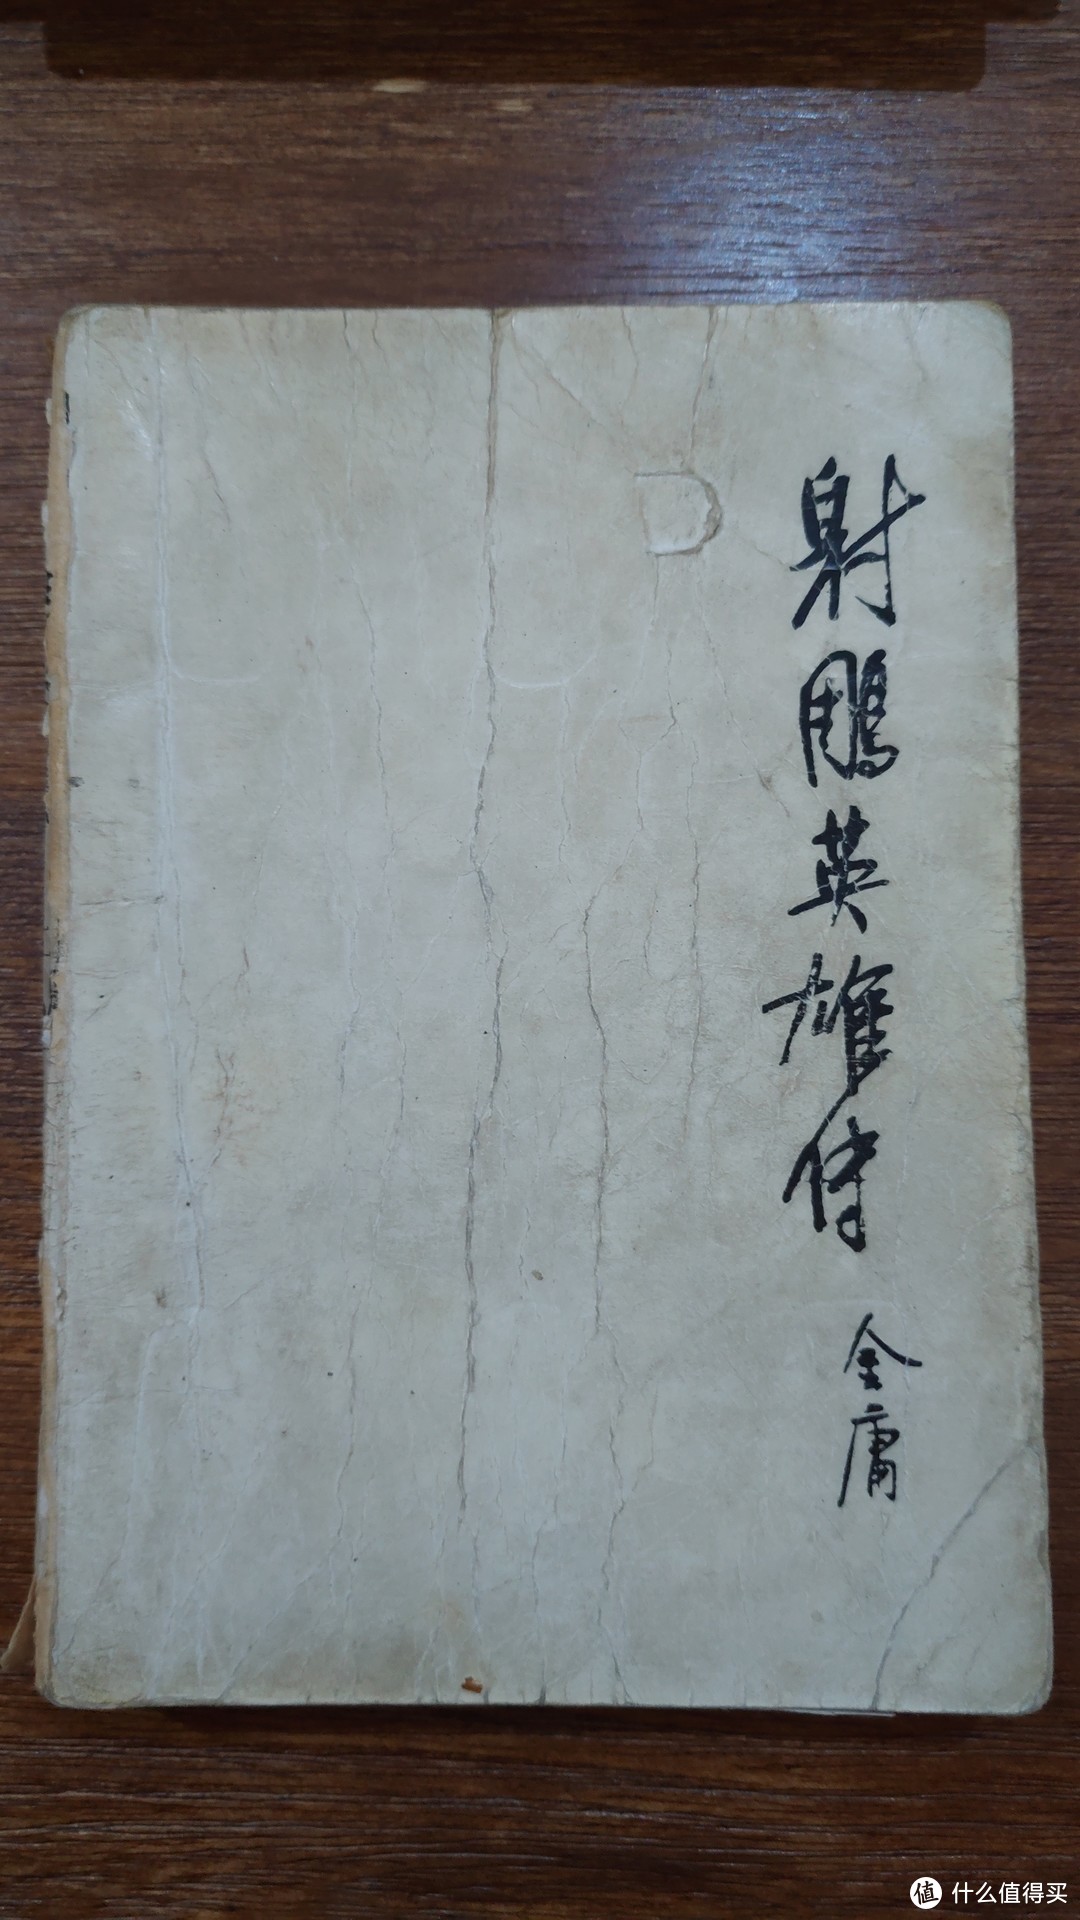 射鵰英雄传
金庸
值 什么值得买